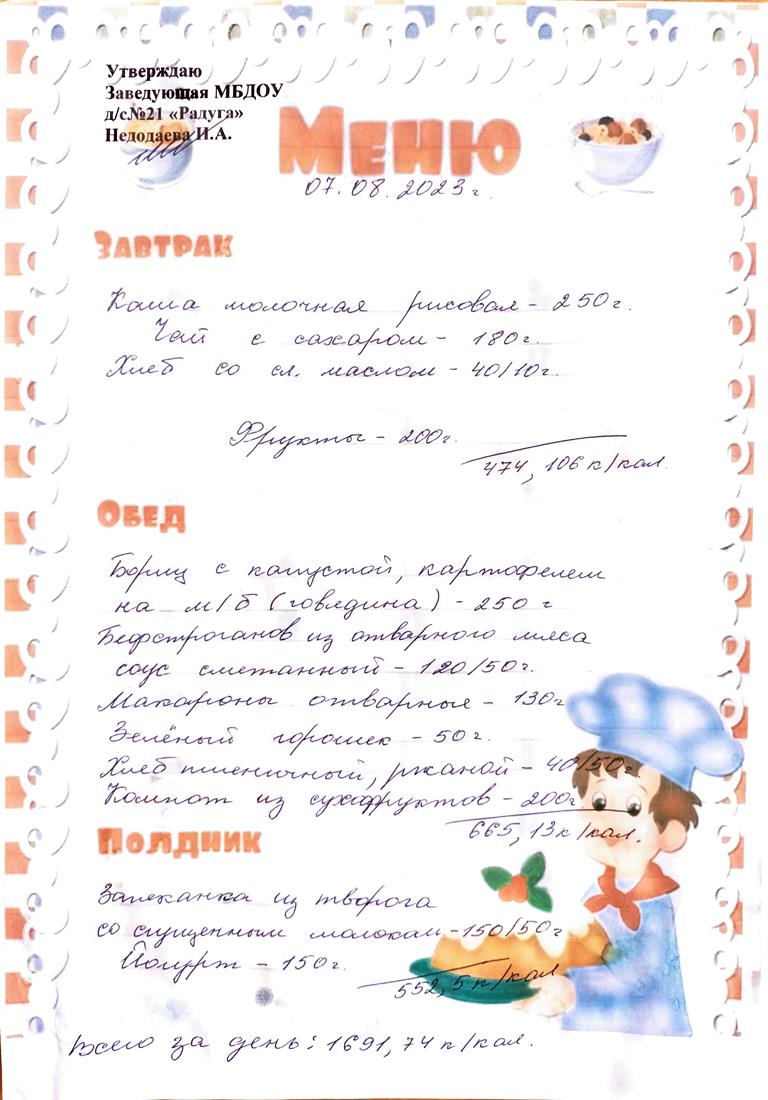 Утверждаю
Заведующая МБДОУ
д/с№21 «Радуга»
Недодаева И.А.
Меню
07.08.2023г.
Завтрак
Каша молочная рисовая - 250г.
Чай с сахаром - 180г.
Хлеб со сл. маслом - 40/10г.
Фрукты - 200г.
474,106 к/кал.
Обед
Борщ с капустой, картофелем
на м/б (говядина) - 250 г
Бефстроганов из отварного мяса
соус сметанный - 120/50г.
Макароны отварные - 130г
Зелёный горошек - 50г.
Хлеб пшеничный, ржаной - 40/50г.
Компот из сухофруктов - 200г
665,13к/кал.
Полдник
Запеканка из творога
со сгущенным молоком - 150/50г
Йогурт - 150г.
552,5 к/кал
Всего за день: 1691,74 к/кал.